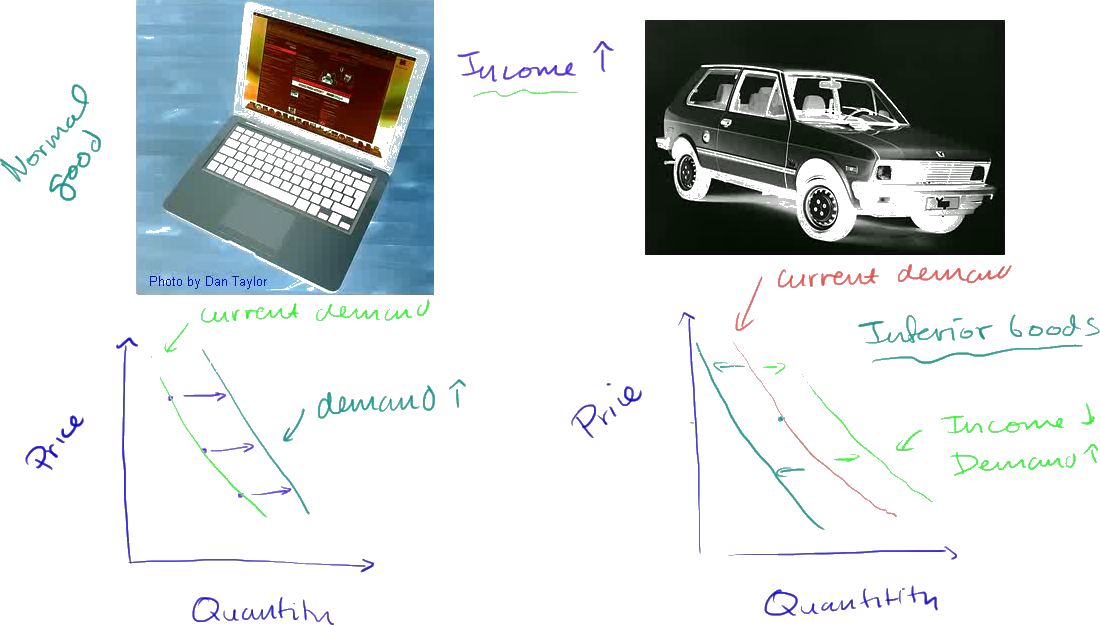 Normal
good
Income ↑
Photo by Dan Taylor
current demand
demand ↑
Price
Quantity
current demand
Inferior Goods
Income ↓
Demand ↑
Price
Quantitity